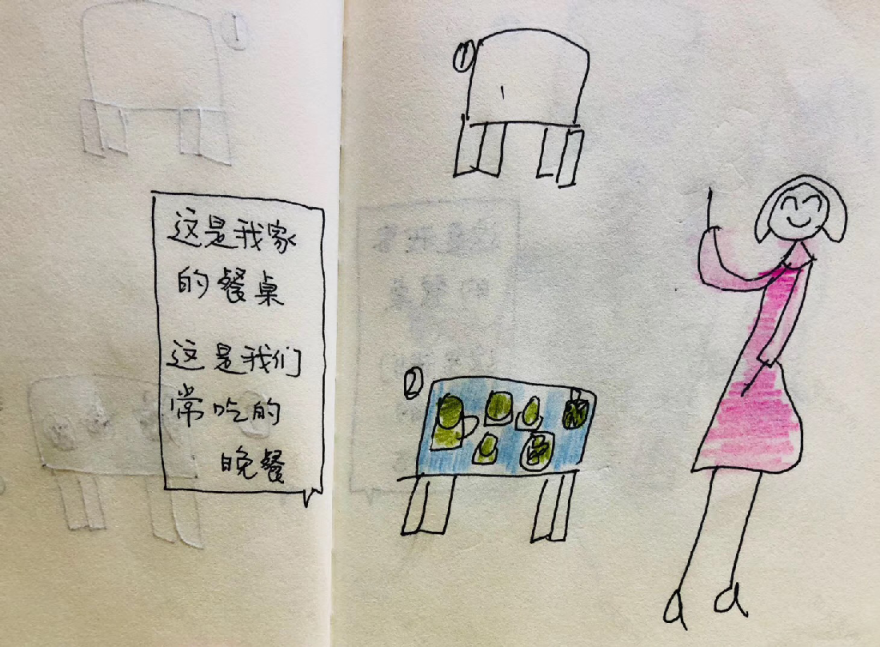 ①
这是我家
的餐桌
这是我们
常吃的
晚餐
②